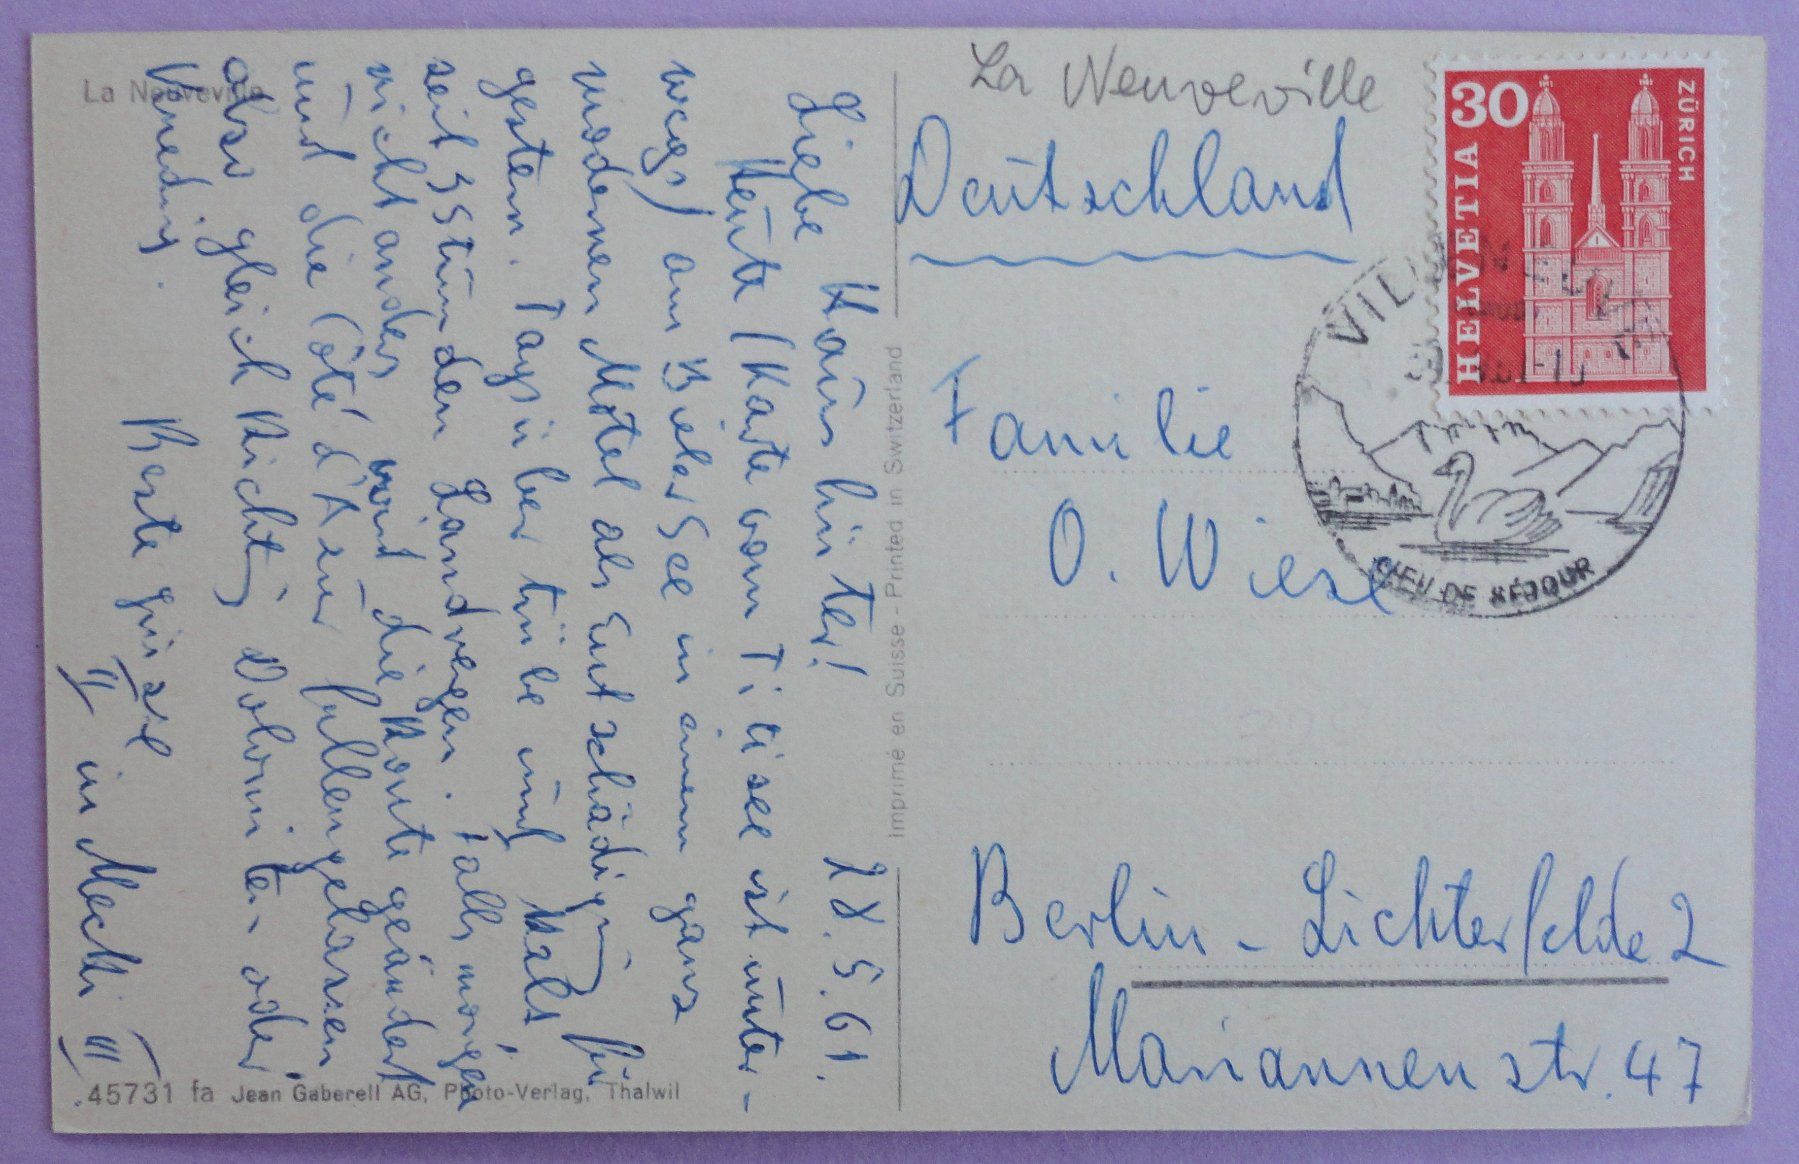 La Neuveville
La Neuveville
Deutschland
Familie
O. Wiese
Berlin-Lichterfelde 2
Mariannenstr. 47
30
HELVETIA
ZÜRICH
VILLENEUVE
LIEU DE SÉJOUR
Imprimé en Suisse - Printed in Switzerland
28.5.61.
Liebe Haus hüter!
Heute (Karte vom Titisee ist unter-
wegs) am Bieler See in einem ganz
modernen Motel als Entschädigung für
gestern. Tagsüber trübe und kalt
seit 3 Stunden Landregen. Falls morgen
nicht anders wird die Route geändert
und die Côte d'Azur fallengelassen
also gleich Richtg Dolomiten oder
Venedig. Beste Grüsse
II in Mecki III
45731 fa Jean Gaberell AG, Photo-Verlag, Thalwil